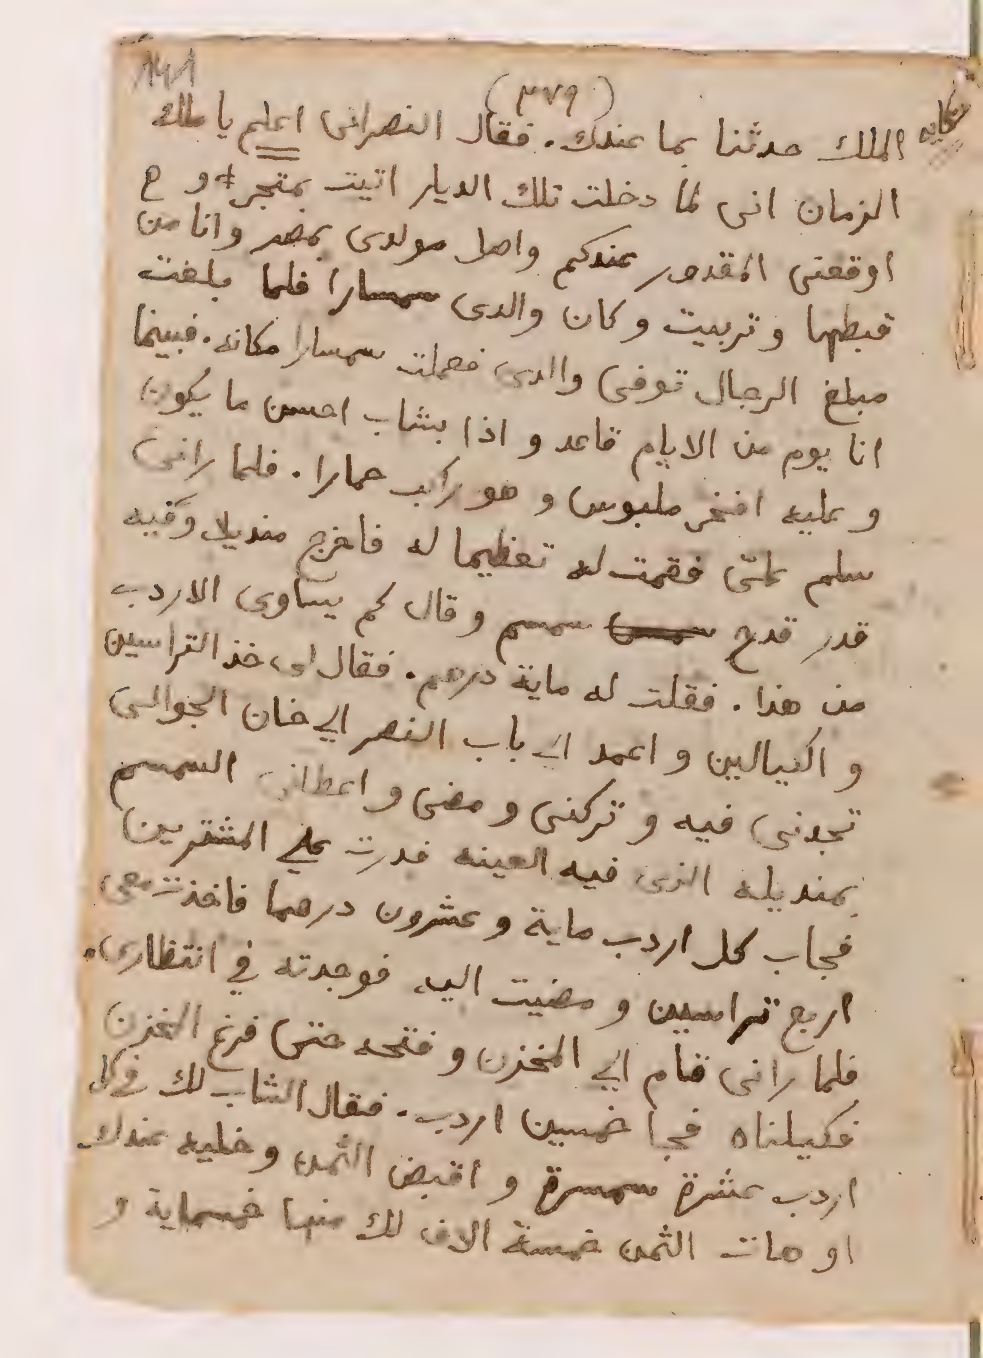 (٣٧٩)
الملك حدثنا بما عندك. فقال النصرانى اعلم يا ملك
حكايه
الزمان انى لما دخلت تلك الديار اتيت بمتجر و
اوقعنى المقدور عندكم واصل مولدى بمصر وانا من
قبطها و تربيت و كان والدى سمسارا فلما بلغت
مبلغ الرجال توفى والدى فعملت سمسارا مكانه. فبينما
انا يوم من الايام قاعد و اذا بشاب احسن ما يكون
و عليه افخر ملبوس و هو راكب حمارا. فلما رانى
سلم علىّ فقمت له تعظيما له فاخرج منديلا وفيه
قدر قدح سمسم و قال كم يساوى الاردب
من هذا. فقلت له ماية درهم. فقال لى خذ التراسين
و الكيالين و اعمد الى باب النصر الي خان الجوالى
تجدنى فيه و تركنى و مضى و اعطانى السمسم
بمنديله الذى فيه العينه فدرت علي المشترين
فجاب كل اردب ماية و عشرون درهما فاخذت معى
اربع تراسين و مضيت اليه فوجدته في انتظارى.
فلما رانى قام الي المخزن و فتحه حتى فرغ المخزن
فكيلناه فجا خمسين اردب. فقال الشاب لك في كل
اردب عشرة سمسرة و اقبض الثمن و خليه عندك
او هات الثمن خمسة الاف لك منها خمسماية و